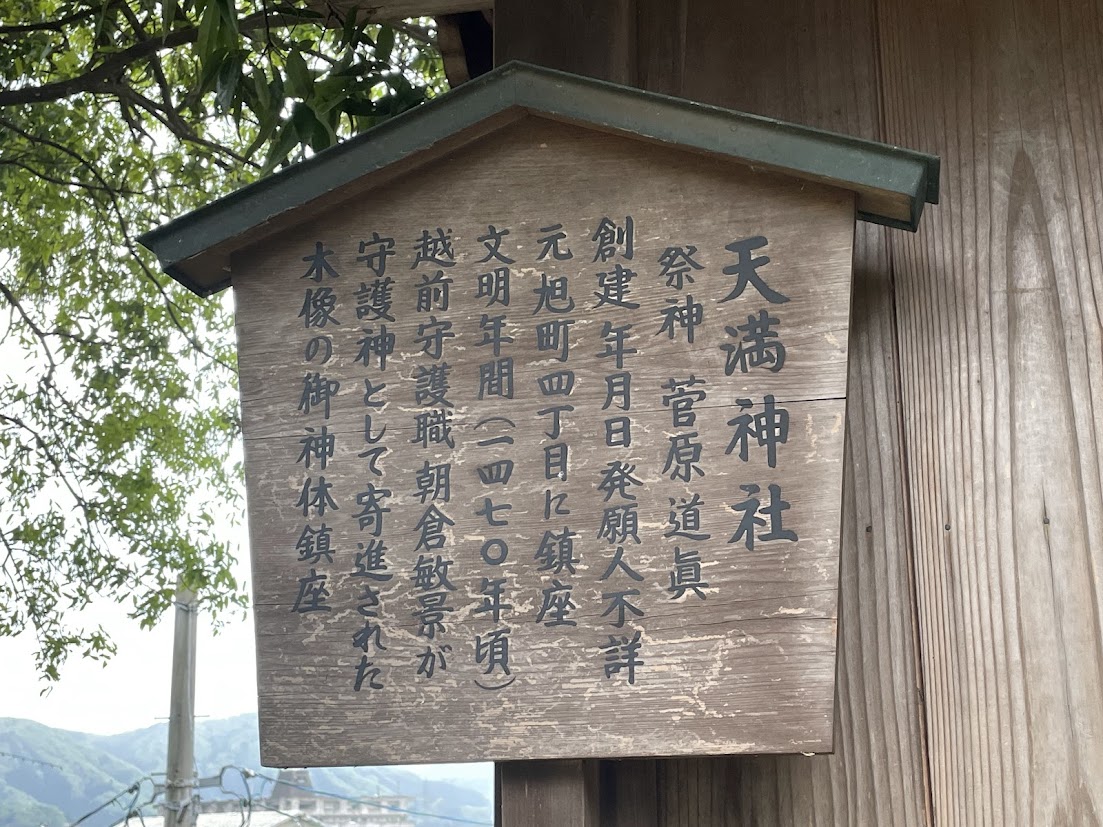 天満神社
祭神 菅原道眞
創建年月日発願人不詳
元旭町四丁目に鎮座
文明年間(一四七〇年頃)
越前守護職朝倉敏景が
守護神として寄進された
木像の御神体鎮座